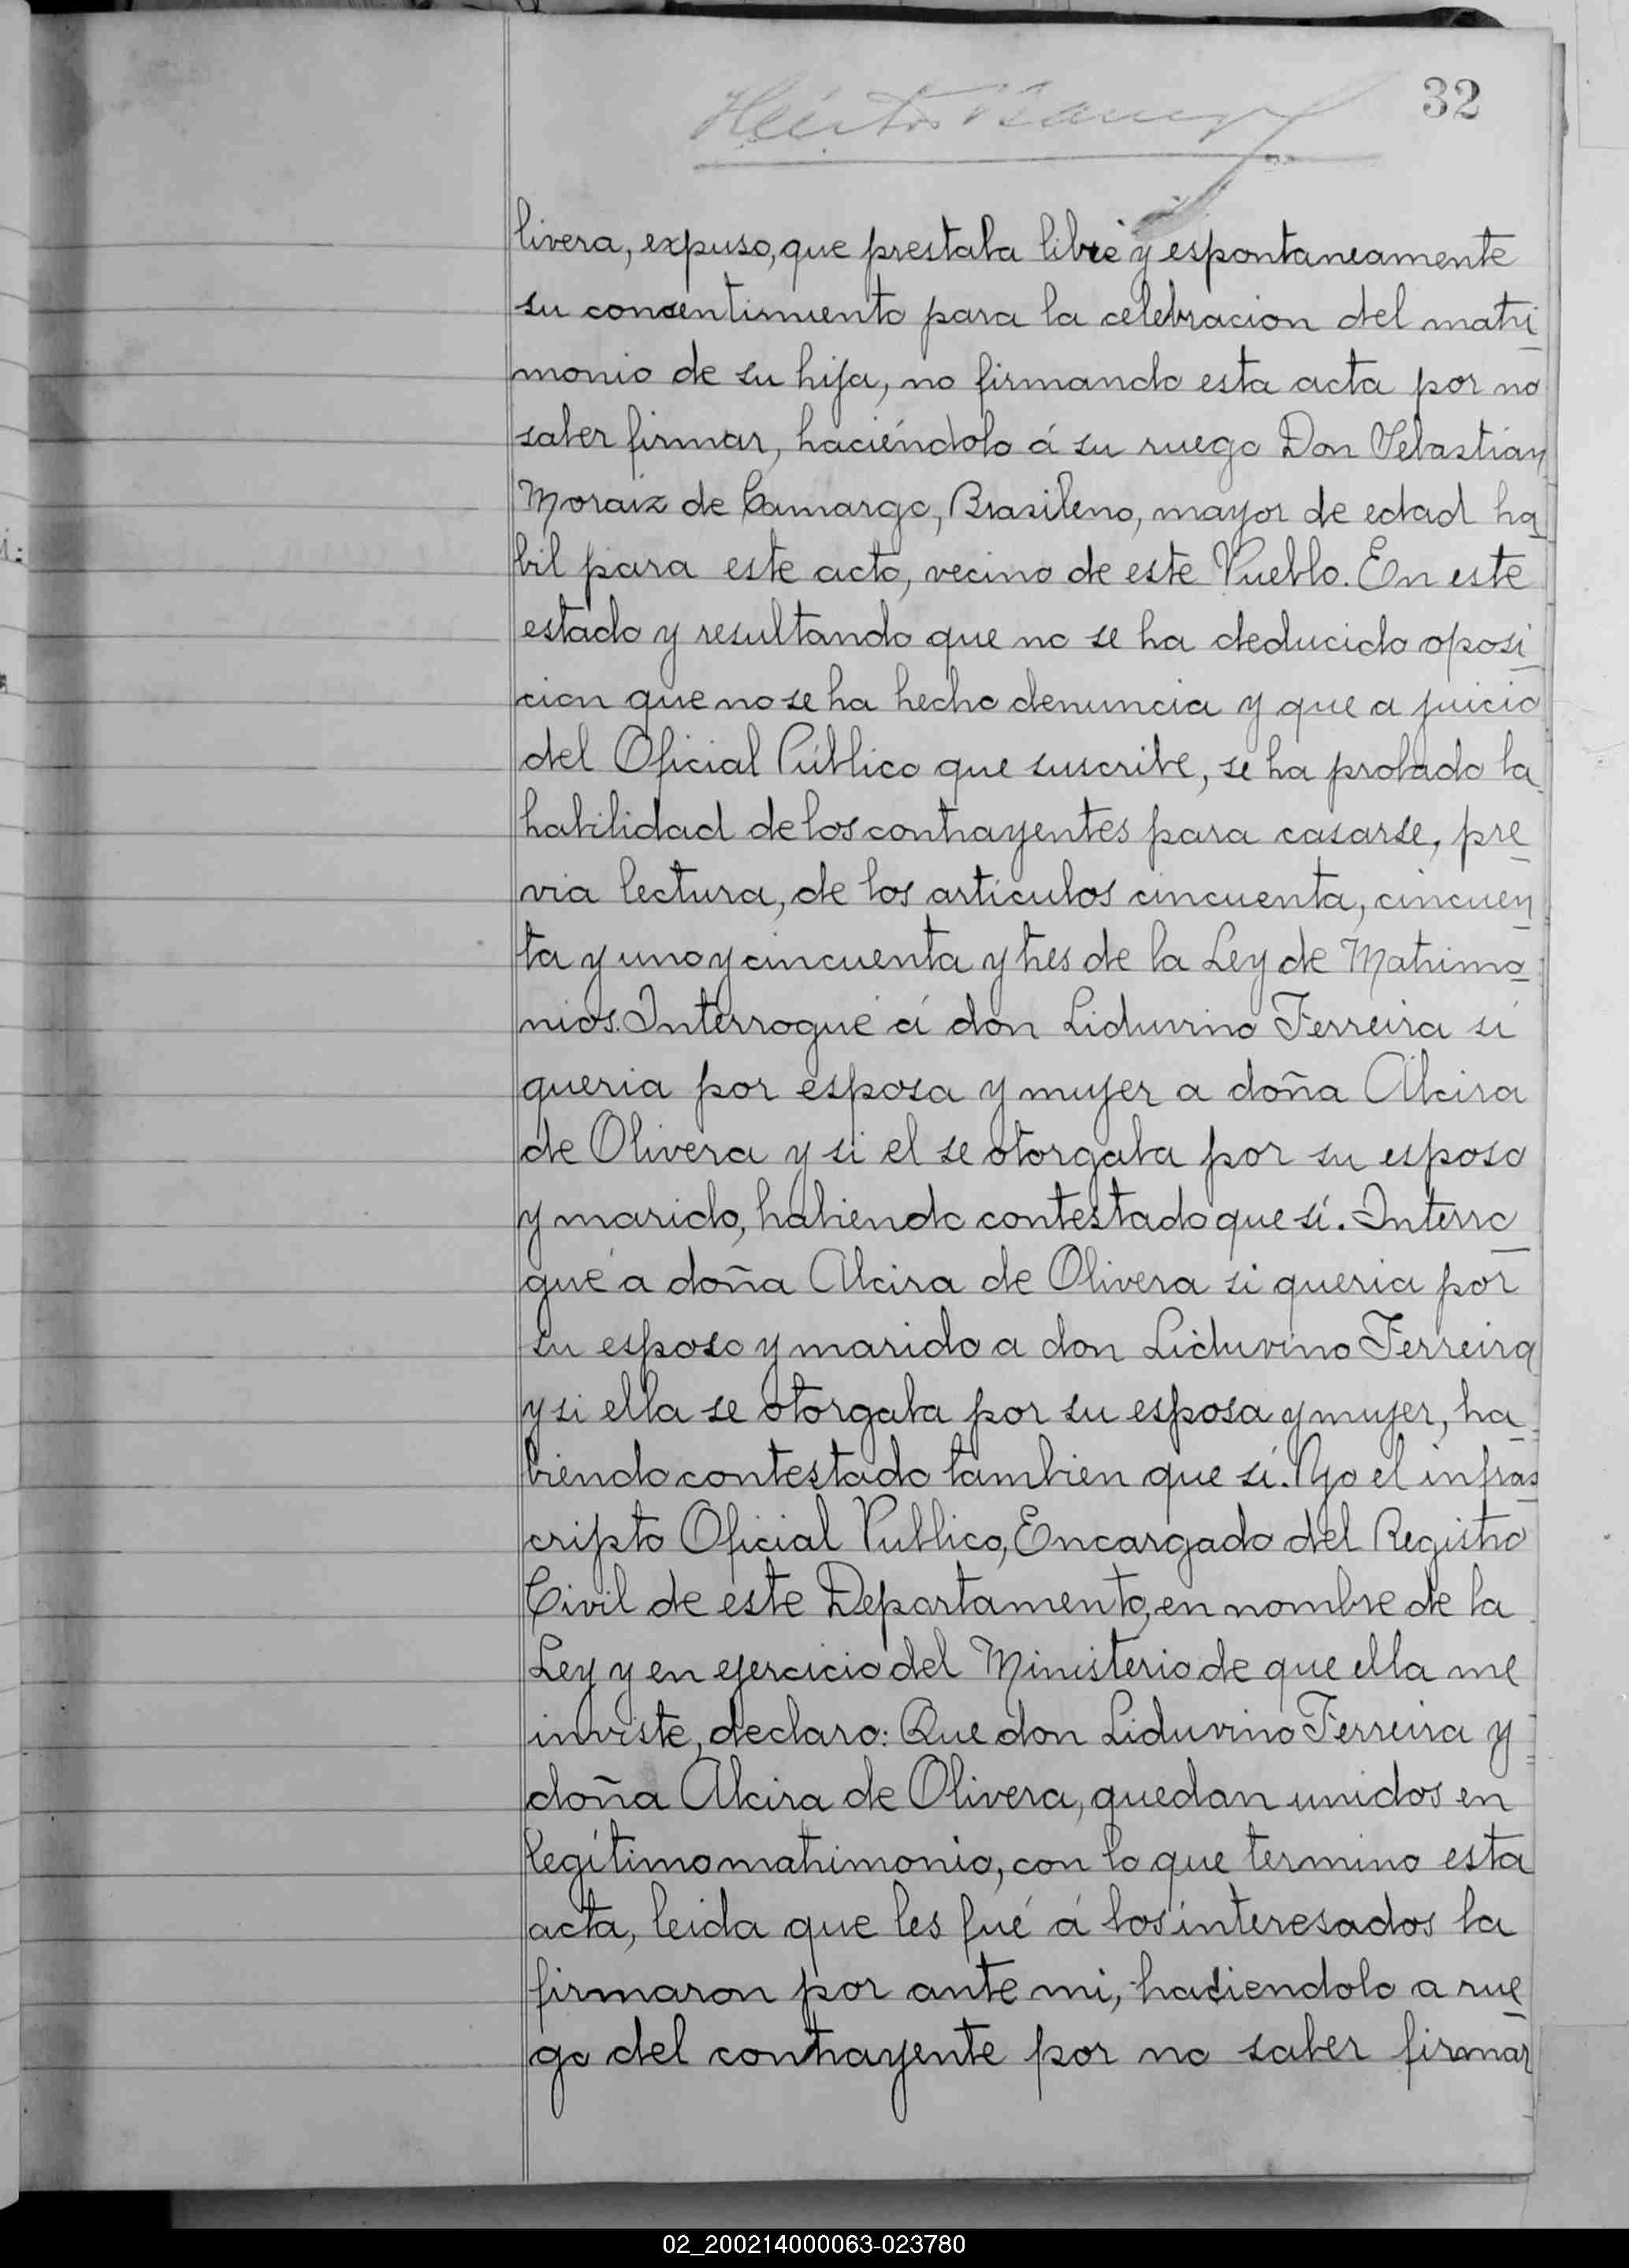 32
Héctor
livera, expuso, que prestaba libre y espontaneamente
su consentimiento para la celebracion del matri
monio de su hija, no firmando esta acta por no
saber firmar, haciéndolo á su ruego Don Sebastián
Moraiz de Camargo, Brasileno, mayor de edad ha
bil para este acto, vecino de este Pueblo. En este
estado y resultando que no se ha deducido oposi
cion que no se ha hecho denuncia y que a juicio
del Oficial Público que suscribe, se ha probado la
habilidad de los contrayentes para casarse, pre
via lectura, de los articulos cincuenta, cincuen
ta y uno y cincuenta y tres de la Ley de Matrimo
nios. Interrogué á don Liduvino Ferreira si
queria por esposa y mujer a doña Alcira
de Olivera y si el se otorgaba por su esposo
y marido, habiendo contestado que sí. Interro
gué a doña Alcira de Olivera si queria por
su esposo y marido a don Liduvino Ferreira
y si ella se otorgaba por su esposa y mujer, ha
biendo contestado tambien que sí. Yo el infras
cripto Oficial Publico, Encargado del Registro
Civil de este Departamento, en nombre de la
Ley y en ejercicio del Ministerio de que ella me
inviste, declaro: Que don Liduvino Ferreira y
doña Alcira de Olivera, quedan unidos en
legítimo matrimonio, con lo que termino esta
acta, leida que les fué á los interesados la
firmaron por ante mi, haciendolo a rue
go del contrayente por no saber firmar
02_200214000063-023780